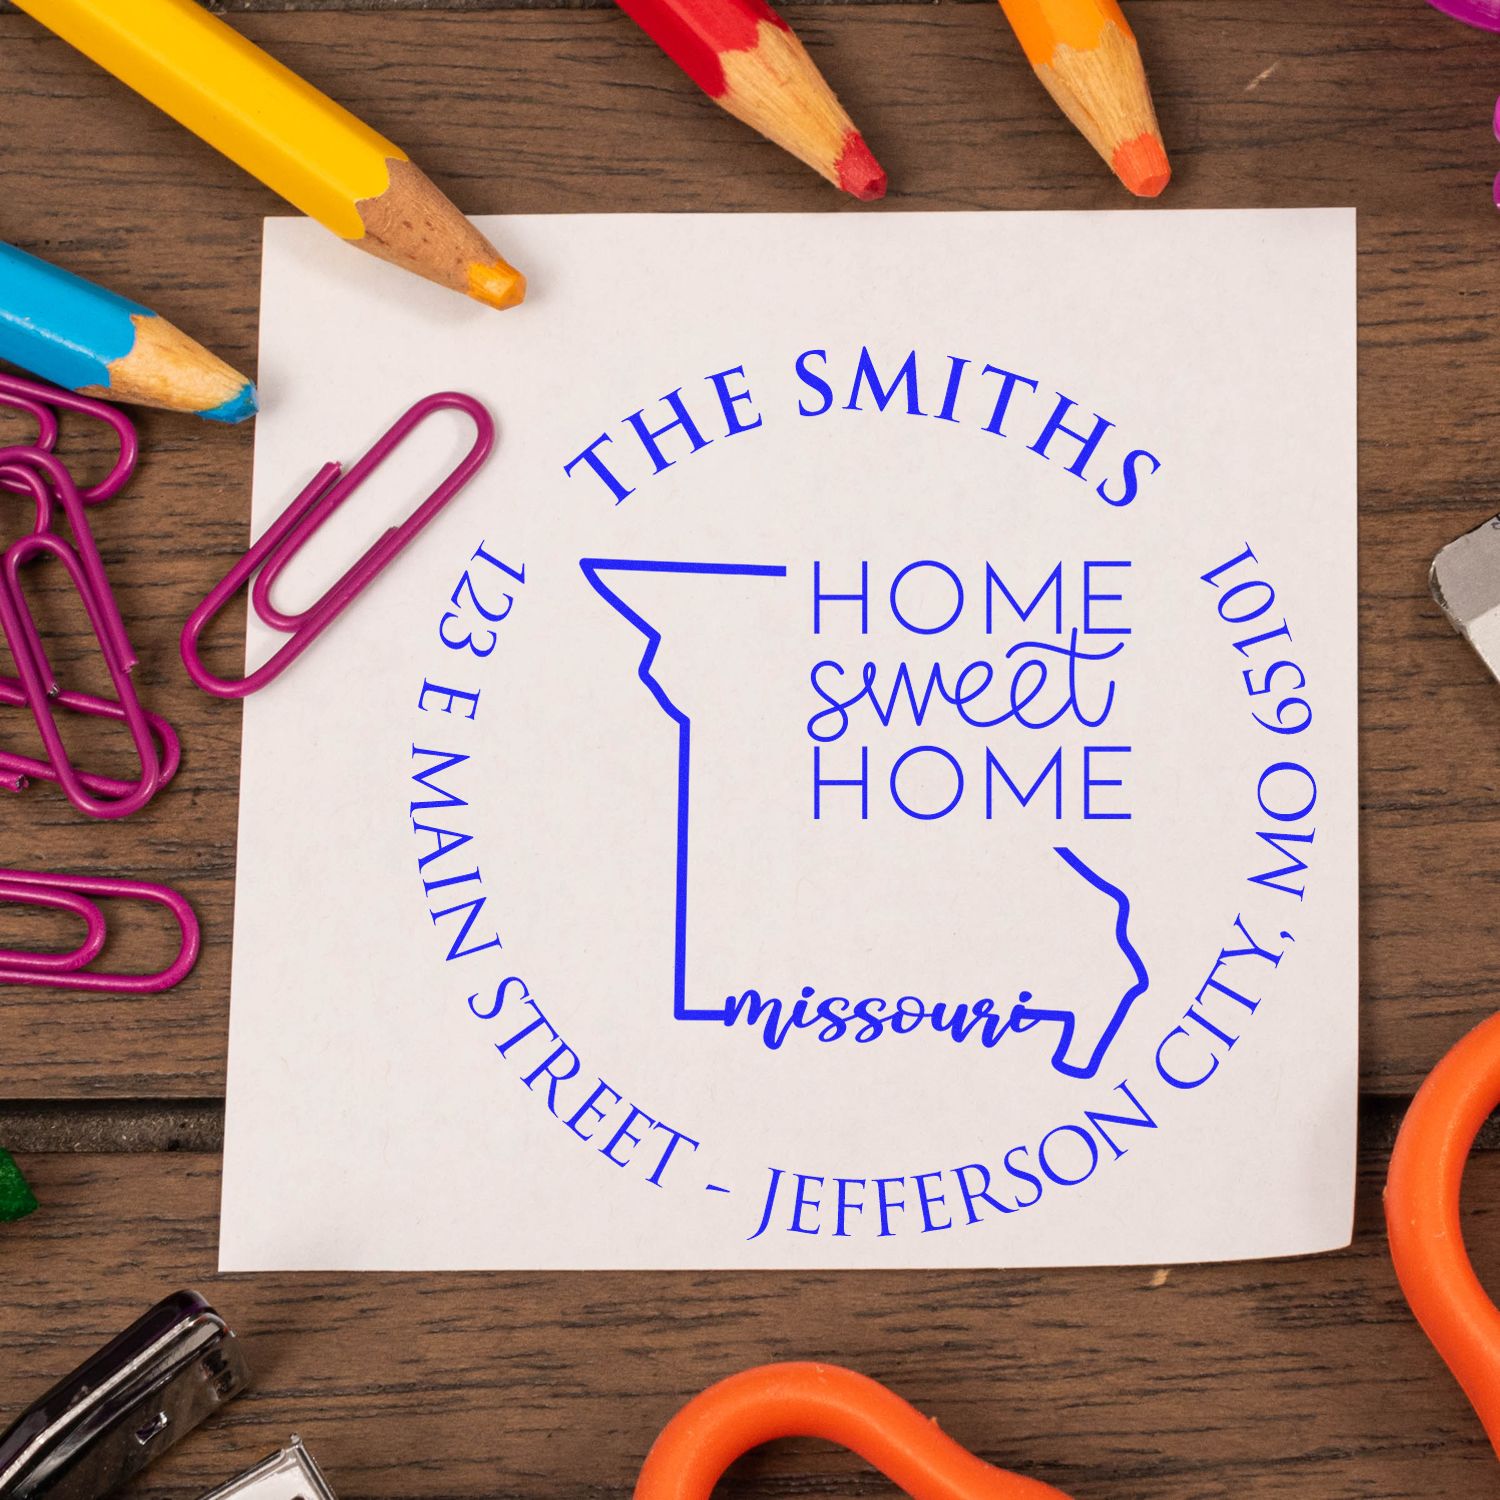 THE SMITHS
HOME
sweet
HOME
missouri
123 E MAIN STREET - JEFFERSON CITY, MO 65101